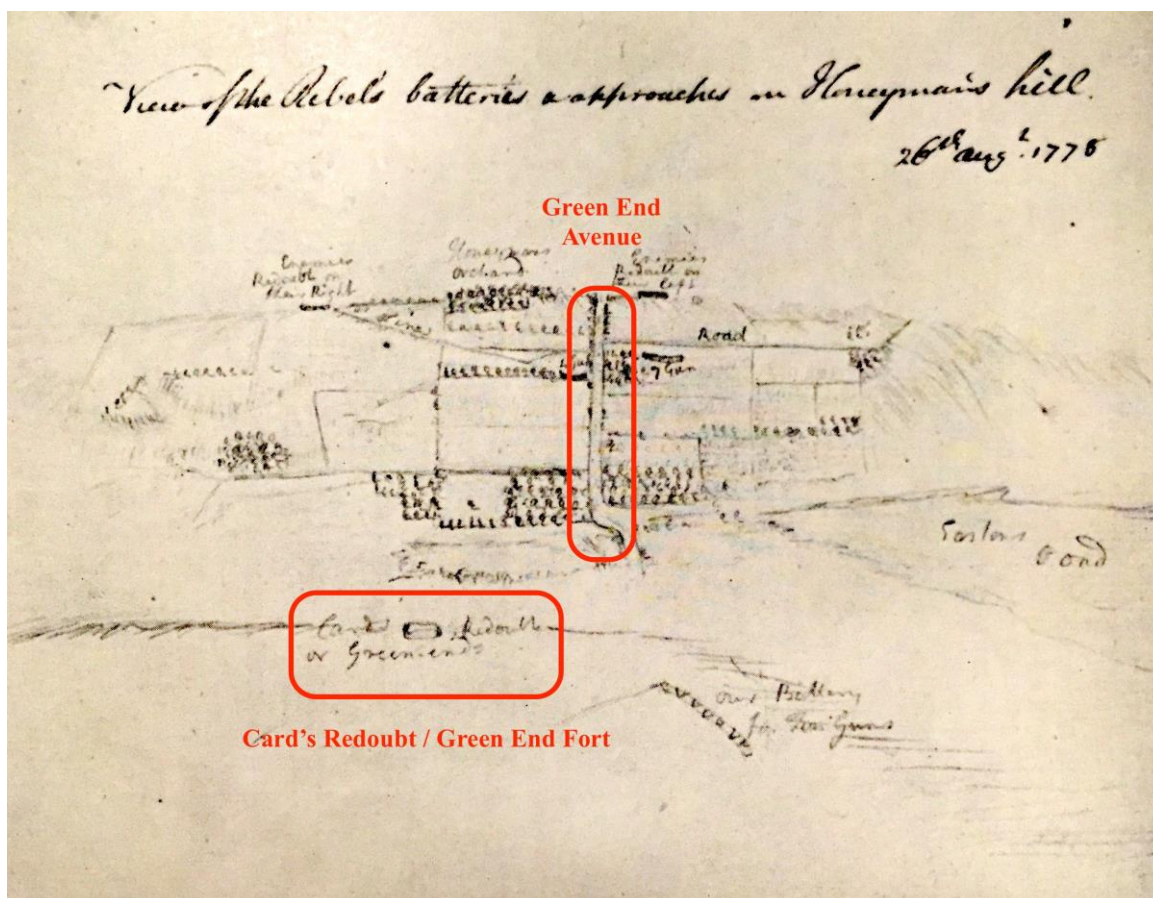 View of the Rebels batteries & approaches on Honeymans hill.
26th augt. 1778
Green End
Avenue
Enemies
Redoubt on
their Right
Honeymans
orchard
Enemies
Redoubt on
their left
Line
Road
7 Gun
Eastons
Pond
Cards Redoubt
or Greenends
our Battery
for Four Guns
Card's Redoubt / Green End Fort